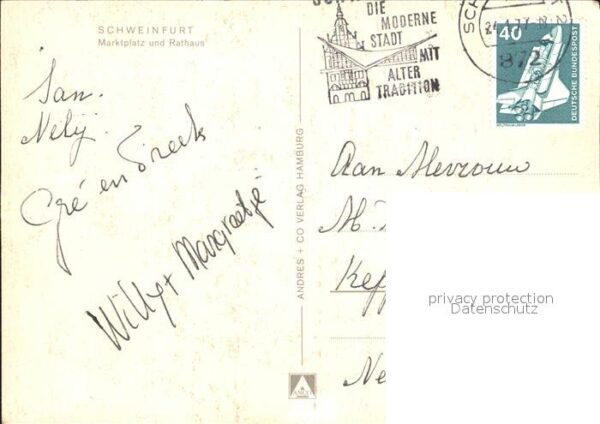 SCHWEINFURT
Marktplatz und Rathaus
DIE
MODERNE
STADT
MIT
ALTER
TRADITION
872
40
DEUTSCHE BUNDESPOST
San.
Nelij.
Gré en Sreek
Willy + Margreetje
ANDRES + CO VERLAG HAMBURG
Aan Mevrouw
M.
Kepp
Ne
privacy protection
Datenschutz